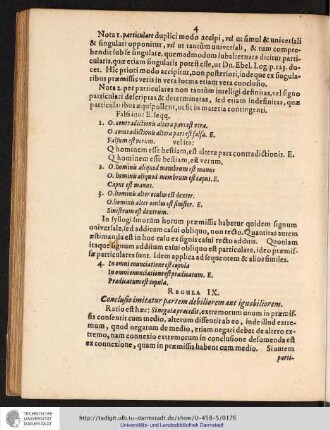 4
Nota 1. particulare duplici modo accipi, vel ut simul & universali
& singulari opponitur, vel ut tantùm universali, & tum compre-
hendit sub se singulare. quemadmodum subalternata dicitur parti-
cularis, quæ etiam singularis potest esse, ut Dn. Ebel. Log. p. 123. do-
cet. Hîc priori modo accipitur, non posteriori, indeque ex singula-
ribus præmissis veris in vera forma etiam vera conclusio.
Nota 2. per particulares non tantùm intelligi definitas, vel signo
particulari descriptas & determinatas, sed etiam indefinitas, quæ
particularibus æquipollent, ut fit in materia contingenti.
Falsa sint: E. seqq.
1. O. contradictionis altera pars est vera.
O. contradictionis altera pars est falsa. E.
Falsum est verum. vel ita:
Q hominem esse bestiam, est altera pars contradictionis. E.
Q hominem esse bestiam, est verum,
2. O. hominis aliquod membrum est manus
O. hominis aliquod membrum est caput. E.
Caput est manus.
3. O. hominis alter oculus est dexter.
O. hominis alter oculus est sinister. E.
Sinistrum est dextrum.
In syllogismorum horum præmissis habetur quidem signum
universale, sed additum casui obliquo, non recto. Quantitas autem
æstimanda est in hoc casu ex signis casui recto additis. Quoniam
itaque signum additum casui obliquo est particulare, ideo præmis-
sæ particulares sunt. Idem applica ad sequentem & alios similes.
4. In omni enunciatione est copula
In omni enunciatione est prædicatum. E.
Prædicatum est copula.
REGULA IX.
Conclusio imitatur partem debiliorem aut ignobiliorem.
Ratio est hæc: Si negata prævidit, extremorum unum in præmis-
sis consentit cum medio, alterum dissentit ab eo, inde illud extre-
mum, quod negatum de medio, etiam negari debet de altero ex-
tremo, nam connexio extremorum in conclusione desumenda est
ex connexione, quam in præmissis habent cum medio. Si autem
parti-
TECHNISCHE
UNIVERSITÄT
DARMSTADT
http://tudigit.ulb.tu-darmstadt.de/show/U-458-5/0176
Universitäts- und Landesbibliothek Darmstadt